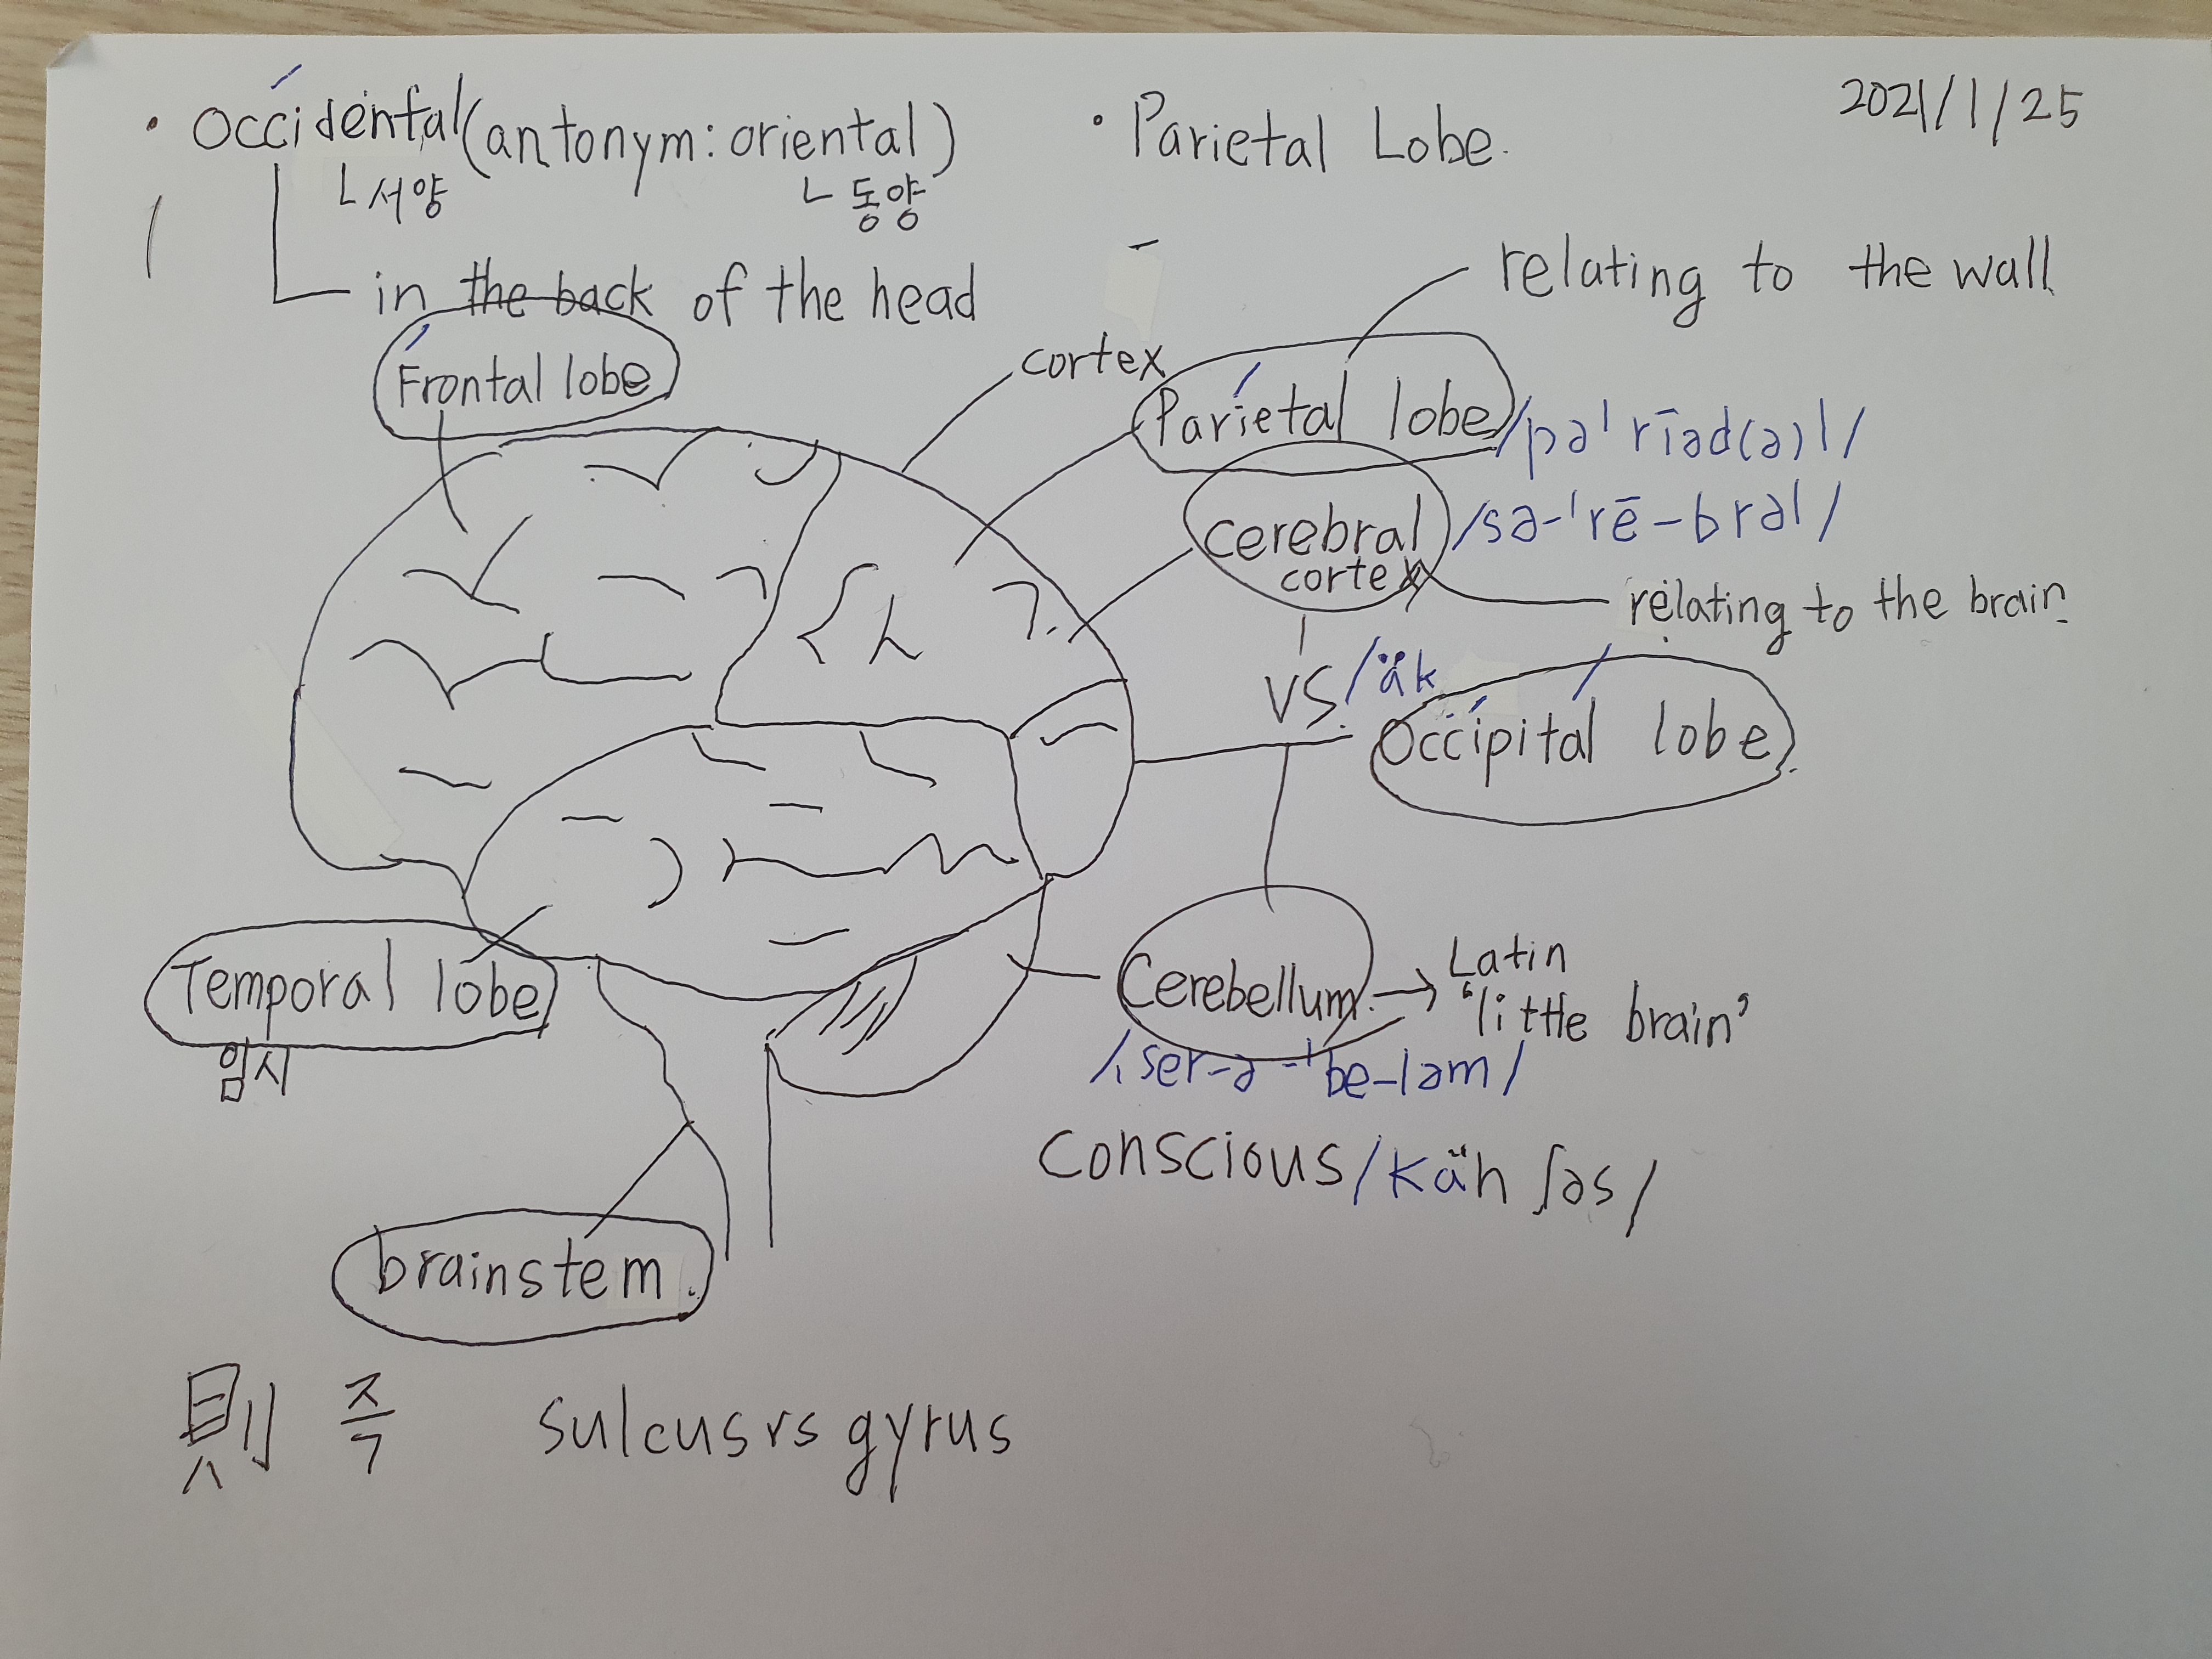 • Occidental (antonym: oriental)
ㄴ서양
ㄴ동양
in the back of the head
• Parietal Lobe.
2021/1/25
relating to the wall
Frontal lobe
cortex
Parietal lobe /pəˈrīəd(ə)l/
cerebral cortex /sə-ˈrē-brəl/
relating to the brain
VS.
/äk
Occipital lobe
Temporal lobe
임시
Cerebellum → Latin 'little brain'
/ˌser-ə-ˈbe-ləm/
conscious /känʃəs/
brainstem.
則 즉 sulcus vs gyrus